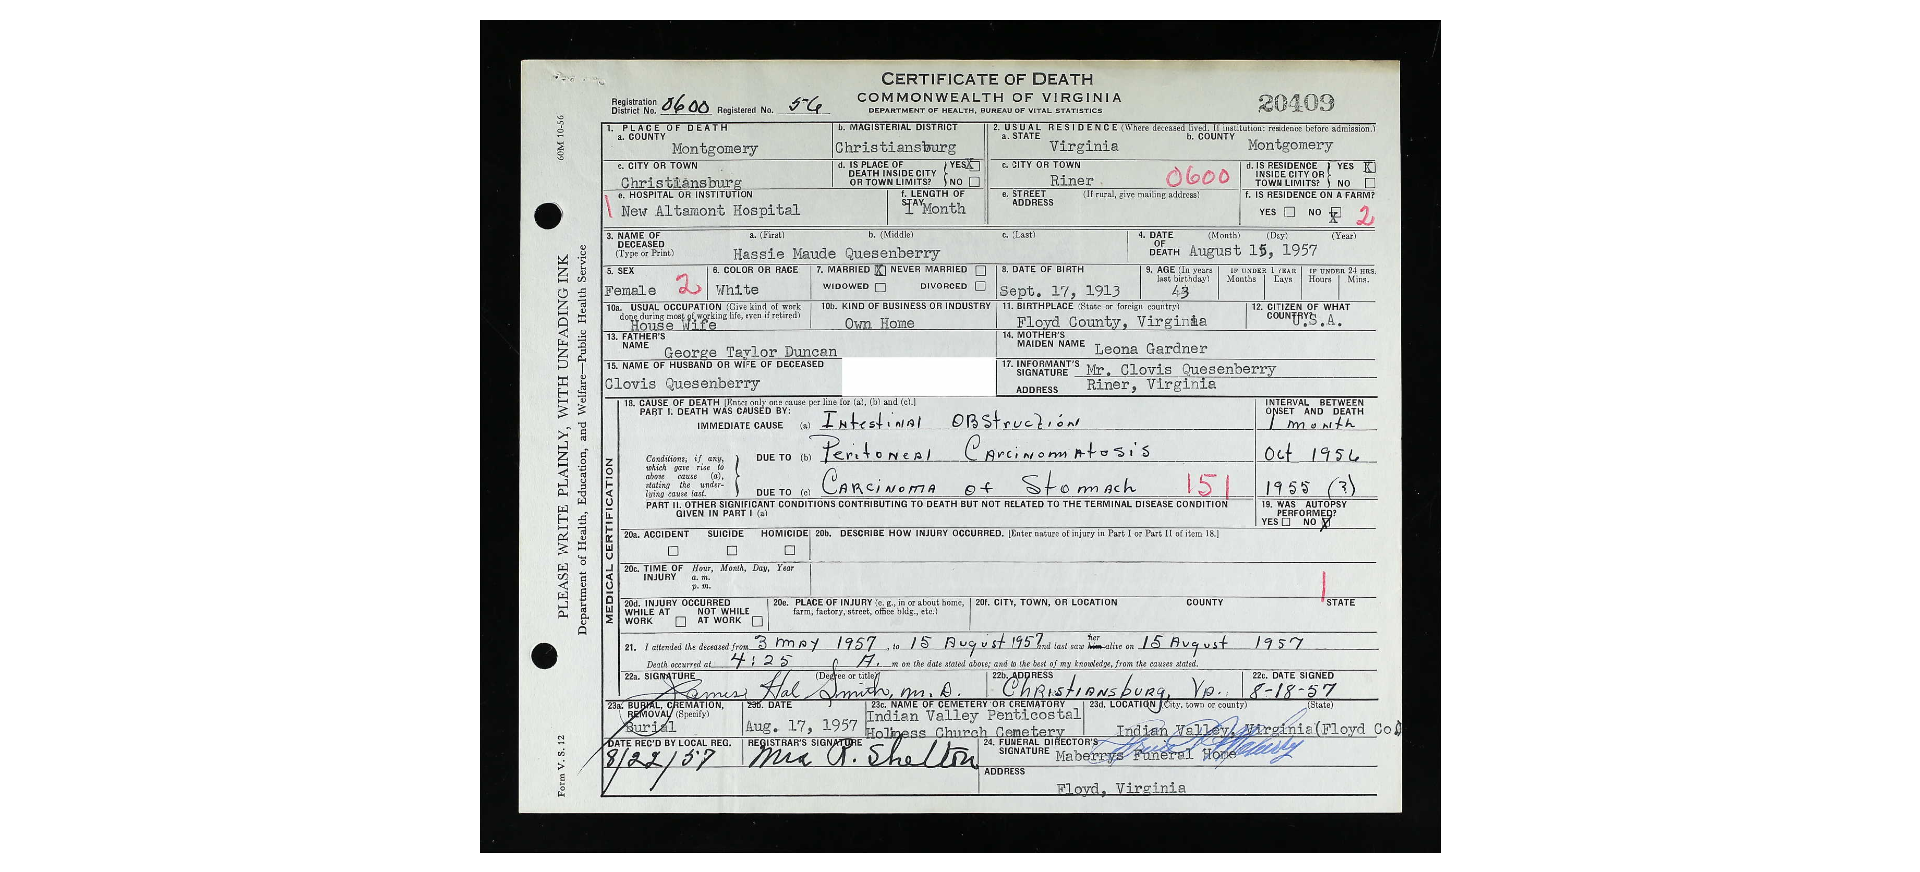 CERTIFICATE OF DEATH
COMMONWEALTH OF VIRGINIA
DEPARTMENT OF HEALTH, BUREAU OF VITAL STATISTICS
20409
Registration District No. 0600 Registered No. 56
60M 10-56
PLEASE WRITE PLAINLY, WITH UNFADING INK
Department of Health, Education, and Welfare—Public Health Service
Form V. S. 12
1. PLACE OF DEATH
a. COUNTY
Montgomery
b. MAGISTERIAL DISTRICT
Christiansburg
2. USUAL RESIDENCE (Where deceased lived. If institution: residence before admission.)
a. STATE
Virginia
b. COUNTY
Montgomery
c. CITY OR TOWN
Christiansburg
d. IS PLACE OF DEATH INSIDE CITY OR TOWN LIMITS? YES X NO
c. CITY OR TOWN
Riner 0600
d. IS RESIDENCE INSIDE CITY OR TOWN LIMITS? YES X NO
e. HOSPITAL OR INSTITUTION
1 New Altamont Hospital
f. LENGTH OF STAY
1 Month
e. STREET ADDRESS (If rural, give mailing address)
f. IS RESIDENCE ON A FARM?
YES NO X 2
3. NAME OF DECEASED (Type or Print)
a. (First) b. (Middle) c. (Last)
Hassie Maude Quesenberry
4. DATE OF DEATH (Month) (Day) (Year)
August 15, 1957
5. SEX
Female 2
6. COLOR OR RACE
White
7. MARRIED X NEVER MARRIED
WIDOWED DIVORCED
8. DATE OF BIRTH
Sept. 17, 1913
9. AGE (In years last birthday)
43
IF UNDER 1 YEAR Months Days
IF UNDER 24 HRS. Hours Mins.
10a. USUAL OCCUPATION (Give kind of work done during most of working life, even if retired)
House Wife
10b. KIND OF BUSINESS OR INDUSTRY
Own Home
11. BIRTHPLACE (State or foreign country)
Floyd County, Virginia
12. CITIZEN OF WHAT COUNTRY?
U.S.A.
13. FATHER'S NAME
George Taylor Duncan
14. MOTHER'S MAIDEN NAME Leona Gardner
15. NAME OF HUSBAND OR WIFE OF DECEASED
Clovis Quesenberry
17. INFORMANT'S SIGNATURE Mr. Clovis Quesenberry
ADDRESS Riner, Virginia
MEDICAL CERTIFICATION
18. CAUSE OF DEATH [Enter only one cause per line for (a), (b) and (c).]
PART I. DEATH WAS CAUSED BY:
IMMEDIATE CAUSE (a) Intestinal Obstruction
INTERVAL BETWEEN ONSET AND DEATH
1 month
Conditions, if any, which gave rise to above cause (a), stating the underlying cause last.
DUE TO (b) Peritoneal Carcinomatosis
Oct 1956
DUE TO (c) Carcinoma of Stomach 151
1955 (?)
PART II. OTHER SIGNIFICANT CONDITIONS CONTRIBUTING TO DEATH BUT NOT RELATED TO THE TERMINAL DISEASE CONDITION GIVEN IN PART I (a)
19. WAS AUTOPSY PERFORMED?
YES NO X
20a. ACCIDENT SUICIDE HOMICIDE
20b. DESCRIBE HOW INJURY OCCURRED. [Enter nature of injury in Part I or Part II of item 18.]
20c. TIME OF INJURY Hour, Month, Day, Year
a. m.
p. m.
20d. INJURY OCCURRED
WHILE AT WORK NOT WHILE AT WORK
20e. PLACE OF INJURY (e. g., in or about home, farm, factory, street, office bldg., etc.)
20f. CITY, TOWN, OR LOCATION COUNTY STATE
1
21. I attended the deceased from 3 May 1957, to 15 August 1957, and last saw her him alive on 15 August 1957
Death occurred at 4:25 A. m on the date stated above; and to the best of my knowledge, from the causes stated.
22a. SIGNATURE (Degree or title)
James Hal Smith, M.D.
22b. ADDRESS
Christiansburg, Va.
22c. DATE SIGNED
8-18-57
23a. BURIAL, CREMATION, REMOVAL (Specify)
Burial
23b. DATE
Aug. 17, 1957
23c. NAME OF CEMETERY OR CREMATORY
Indian Valley Penticostal
Holiness Church Cemetery
23d. LOCATION (City, town or county) (State)
Indian Valley, Virginia (Floyd Co.)
DATE REC'D BY LOCAL REG.
8/22/57
REGISTRAR'S SIGNATURE
Mrs R. Shelton
24. FUNERAL DIRECTOR'S SIGNATURE Maberrys Funeral Home
ADDRESS
Floyd, Virginia